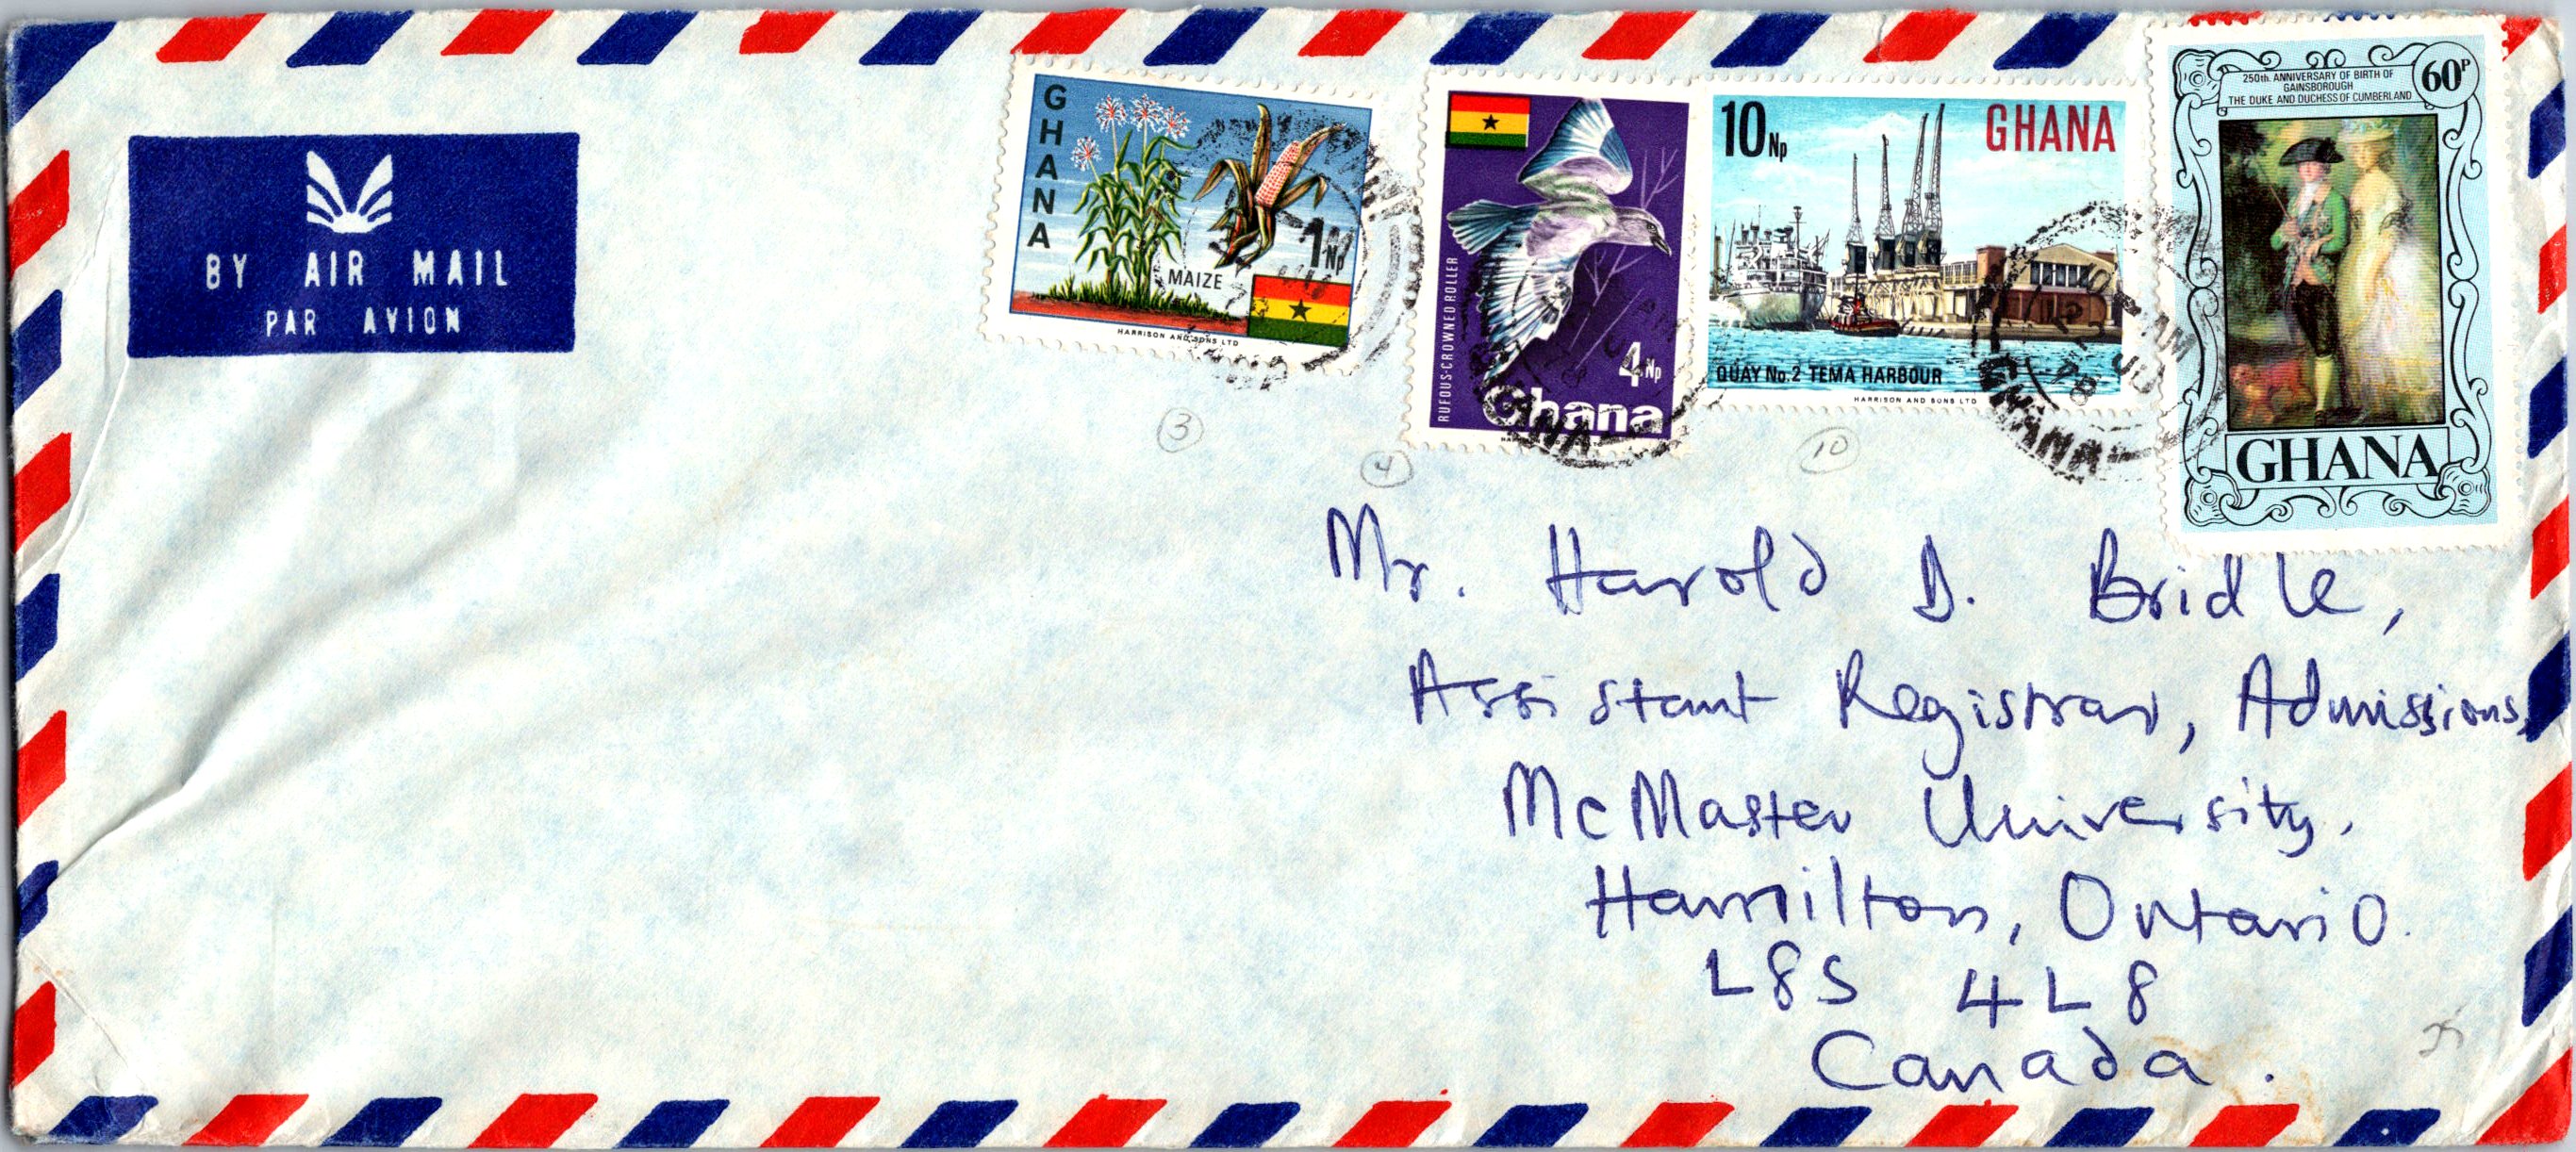 BY AIR MAIL
PAR AVION
GHANA
MAIZE
1Np
HARRISON AND SONS LTD
3
RUFOUS-CROWNED ROLLER
4Np
Ghana
GHANA
4
10Np
GHANA
QUAY No.2 TEMA HARBOUR
HARRISON AND SONS LTD
10
AM
GHANA
250th. ANNIVERSARY OF BIRTH OF
GAINSBOROUGH
THE DUKE AND DUCHESS OF CUMBERLAND
60P
GHANA
Mr. Harold D. Bridle,
Assistant Registrar, Admissions,
McMaster University.
Hamilton, Ontario.
L8S 4L8
Canada.